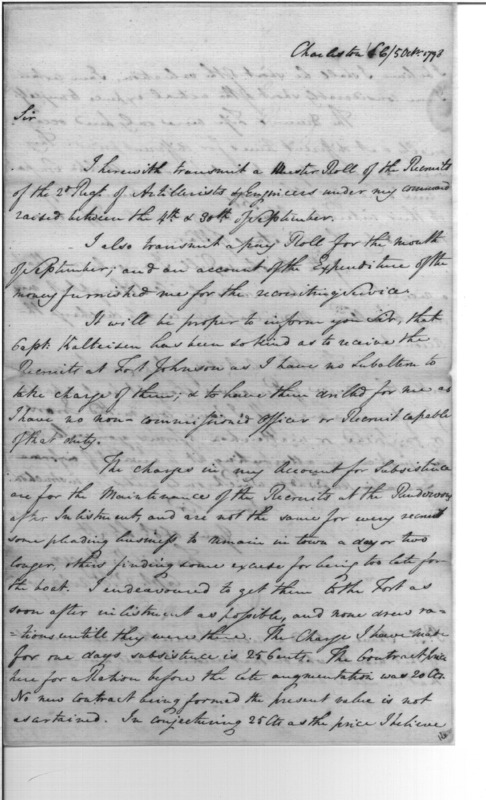 Charleston SC 15 Octr. 1798
Sir
I herewith transmit a Muster Roll of the Recruits
of the 2d Regt. of Artillerists & Engineers under my command
raised between the 4th & 30th of September.
I also transmit a pay Roll for the month
of September; and an account of the Expenditure of the
money furnished me for the recruiting Service.
It will be proper to inform you Sir, that
Capt. Kalteisen has been so kind as to receive the
Recruits at Fort Johnson as I have no Subaltern to
take charge of them; & to have them drilled for me as
I have no non-commission'd Officer or Recruit capable
of that duty.
The charges in my Account for Subsistence
are for the Maintenance of the Recruits at the Rendezvous
after Inlistment, and are not the same for every recruit
some pleading business to remain in town a day or two
longer, others finding some excuse for being too late for
the boat. I endeavoured to get them to the Fort as
soon after inlistment as possible, and none drew ra-
-tions untill they were there. The Charge I have made
for one days subsistence is 25 Cents. The Contract price
here for a Ration before the late augmentation was 20 Cts.
No new contract being formed the present value is not
ascertained. In conjecturing 25 Cts as the price I believe